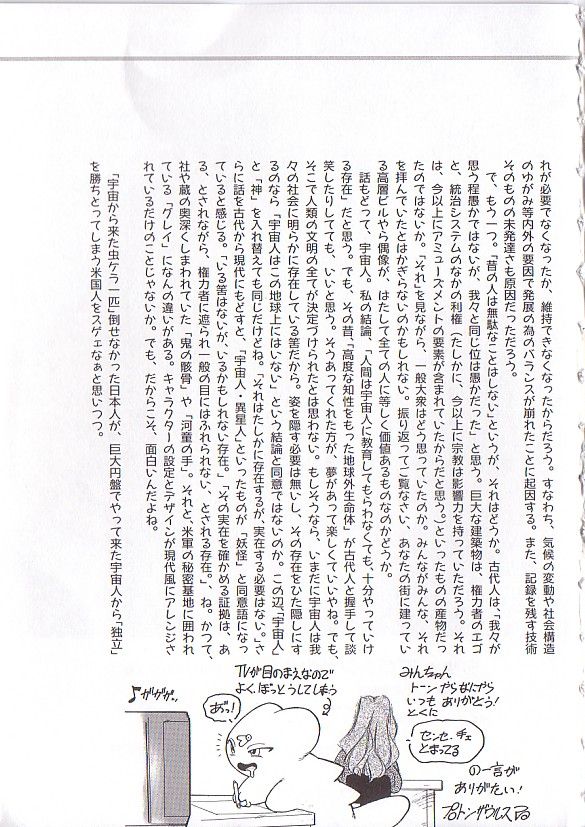 れが必要でなくなったか、維持できなくなったからだろう。すなわち、気候の変動や社会構造
のゆがみ等内外の要因で発展の為のバランスが崩れたことに起因する。また、記録を残す技術
そのものの未発達さも原因だったただろう。
で、もう一つ。「昔の人は無駄なことはしない」というが、それはどうか。古代人は「我々が
思う程愚かではないが、我々と同じ位は愚かだった」と思う。巨大な建築物は、権力者のエゴ
と、統治システムのなかの利権（たしかに、今以上に宗教は影響力を持っていただろう。それ
は、今以上にアミューズメントの要素が含まれていたからだと思う。）といったものの産物だっ
たのではないか。「それ」を見ながら、一般大衆はどう思っていたのか。みんながみんな、それ
を拝んでいたとはかぎらないのかもしれない。振り返ってご覧なさい、あなたの街に建ってい
る高層ビルやら偶像が、はたして全ての人に等しく価値あるものなのかどうか。
話もどって、宇宙人。私の結論、「人間は宇宙人に教育してもらわなくても、十分やっていけ
る存在」だと思う。でも、その昔「高度な知性をもった地球外生命体」が古代人と握手して談
笑したりしてても、いいと思う。そうあってくれた方が、夢があって楽しくていいやね。でも、
そこで人類の文明の全てが決定づけられたとは思わない。もしそうなら、いまだに宇宙人は我
々の社会に明らかに存在している筈だから。姿を隠す必要は無いし、その存在をひた隠しにす
るのなら「宇宙人はこの地球上にはいない」という結論と同意ではないのか。この辺、「宇宙人」
と「神」を入れ替えても同じだけどね。「それはたしかに存在するが、実在する必要はない。」さ
らに話を古代から現代にもどすと、「宇宙人・異星人」といったものが「妖怪」と同意語になっ
ていると感じる。「いる筈はないが、いるかもしれない存在。」「その実在を確かめる証拠は、あ
る、とされながら、権力者に遮られ一般の目にはふれられない、とされる存在。」ね。かつて、
社や蔵の奥深くしまわれていた「鬼の骸骨」や「河童の手」。それと、米軍の秘密基地に囲われ
ている「グレイ」になんの違いがある。キャラクターの設定とデザインが現代風にアレンジさ
れているだけのことじゃないか。でも、だからこそ、面白いんだよね。
「宇宙から来た虫ケラ一匹」倒せなかった日本人が、巨大円盤でやって来た宇宙人から「独立」
を勝ちとってしまう米国人をスゲェなぁと思いつつ。
みんちゃん
トーンやらなにやら
いつもありがとう!
とくに
センセ、チェ
とまってる
の一言が
ありがたい!
プロトンザウルス
TVが目のまえなので
よくぼーっとうしてしまう
あっ!
♪ガガガ、、